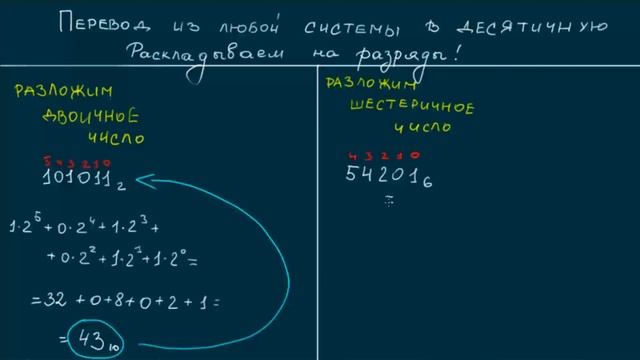 ПЕРЕВОД ИЗ ЛЮБОЙ СИСТЕМЫ В ДЕСЯТИЧНУЮ
Раскладываем на разряды!
РАЗЛОЖИМ
ДВОИЧНОЕ
ЧИСЛО
5 4 3 2 1 0
101011₂
1·2⁵+0·2⁴+1·2³+
+0·2²+1·2¹+1·2⁰=
=32+0+8+0+2+1=
=43₁₀
РАЗЛОЖИМ
ШЕСТЕРИЧНОЕ
ЧИСЛО
4 3 2 1 0
54201₆
=